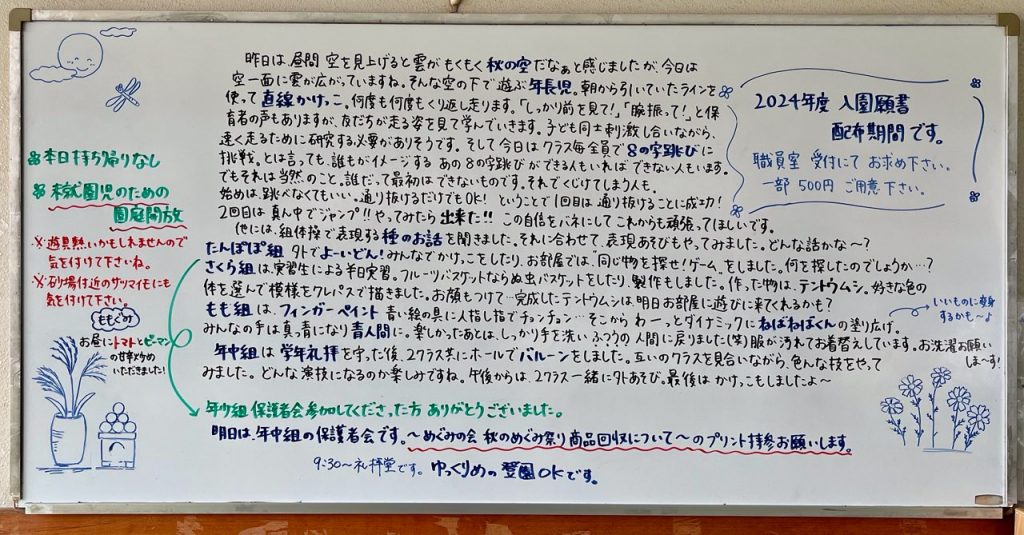 昨日は、昼間 空を見上げると雲がもくもく秋の空だなぁと感じましたが、今日は
空一面に雲が広がっていますね。そんな空の下で遊ぶ年長児。朝から引いていたラインを
使って直線かけっこ。何度も何度もくり返し走ります。「しっかり前を見て!」「腕振って!」と保
育者の声もありますが、友だちが走る姿を見て学んでいきます。子ども同士刺激し合いながら、
速く走るために研究する必要がありそうです。そして今日はクラス毎全員で8の字跳びに
挑戦。とは言っても、誰もがイメージするあの8の字跳びができる人もいれば できない人もいます。
でもそれは当然のこと。誰だって最初はできないものです。それでくじけてしまう人も。
始めは、跳べなくてもいい。通り抜けるだけでもOK! ということで1回目は通り抜けることに成功!
2回目は真ん中でジャンプ!!やってみたら出来た!! この自信をバネにしてこれからも頑張ってほしいです。
他には、組体操で表現する種のお話を聞きました。それに合わせて、表現あそびもやってみました。どんな話かな〜?
たんぽぽ組 外でよーいどん!みんなでかけっこをしたり、お部屋では、"同じ物を探せ!ゲーム"をしました。何を探したのでしょうか…?
さくら組は、実習生による半日実習。フルーツバスケットならぬ虫バスケットをしたり、製作もしました。作った物は、テントウムシ。好きな色の
体を選んで模様をクレパスで描きました。お顔もつけて…完成したテントウムシは、明日お部屋に遊びに来てくれるかも?
もも組は、フィンガーペイント 青い絵の具に人指し指でチョンチョン…そこから わーっとダイナミックにねばねばくんの塗り広げ。
みんなの手は真っ青になり青人間に。楽しかったあとは、しっかり手を洗い ふつうの人間に戻りました(笑)服が汚れてお着替えしています。お洗濯お願い
しまーす!
いいものに変身
するかも〜♪
年中組は 学年礼拝を守った後、2クラス共にホールでバルーンをしました。互いのクラスを見合いながら、色んな技をやって
みました。どんな演技になるのか楽しみですね。午後からは、2クラス一緒に外あそび。最後はかけっこもしましたよ〜
年少組 保護者会参加してくださった方 ありがとうございました。
明日は、年中組の保護者会です。〜めぐみの会 秋のめぐみ祭り商品回収について〜のプリント持参お願いします。
9:30〜礼拝堂です。ゆっくりめの登園OKです。
本日持ち帰りなし
未就園児のための
園庭開放
※遊具熱いかもしれませんので
気を付けて下さいね。
※砂場付近のサツマイモにも
気を付けて下さい。
ももぐみ
お昼にトマトとピーマン
の甘辛炒め
いただきました!
2024年度 入園願書
配布期間です。
職員室 受付にて お求め下さい。
一部 500円 ご用意下さい。